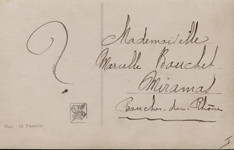 ?
Mademoiselle
Marcelle Bouchet
Miramas
Bouches-du-Rhône